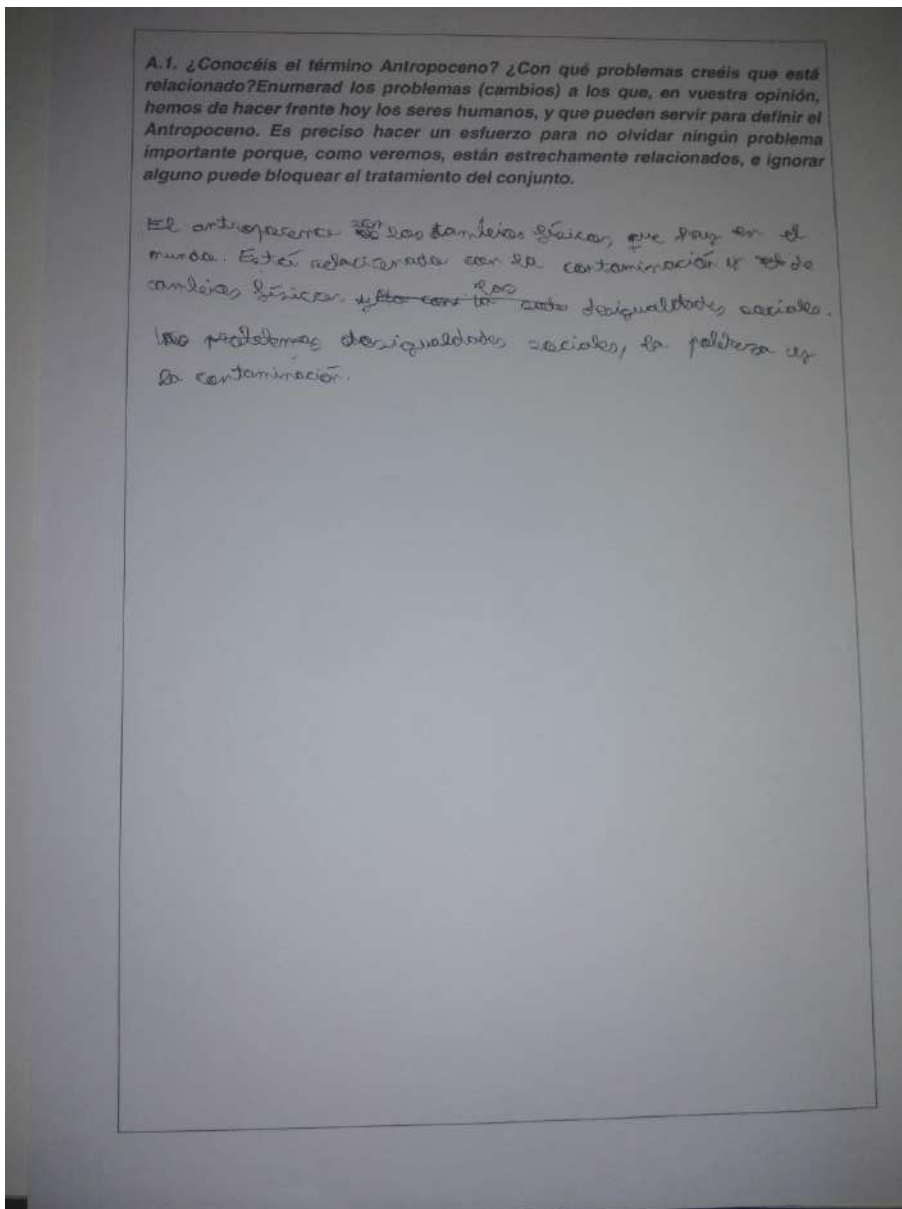 A.1. ¿Conocéis el término Antropoceno? ¿Con qué problemas creéis que está
relacionado?Enumerad los problemas (cambios) a los que, en vuestra opinión,
hemos de hacer frente hoy los seres humanos, y que pueden servir para definir el
Antropoceno. Es preciso hacer un esfuerzo para no olvidar ningún problema
importante porque, como veremos, están estrechamente relacionados, e ignorar
alguno puede bloquear el tratamiento del conjunto.
El son los cambios físicos, que hay en el
mundo. Está relacionado con la contaminación y de
cambios físicos las desigualdades sociales.
Los problemas desigualdades sociales, la pobreza y
la contaminación.